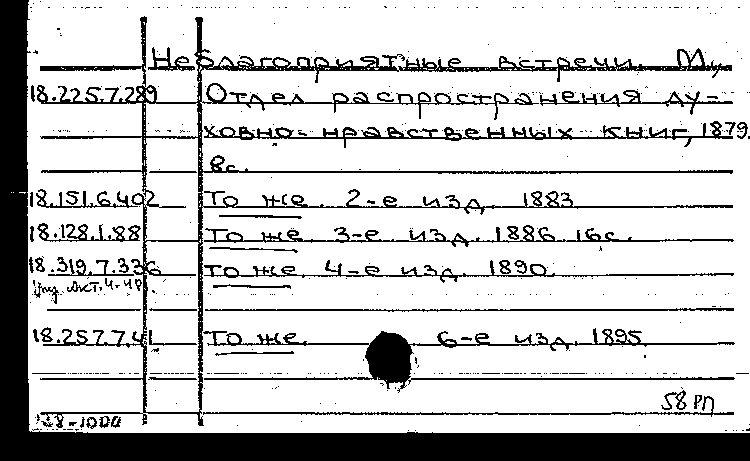 Неблагоприятные встречи. М.,
18.225.7.289 Отдел распространения ду-
ховно-нравственных книг, 1879.
8с.
18.151.6.402 То же. 2-е изд. 1883
18.128.1.88 То же. 3-е изд. 1886 16с.
18.319.7.336 То же. 4-е изд. 1890.
18.257.7.41 То же. 6-е изд. 1895.
58 РП